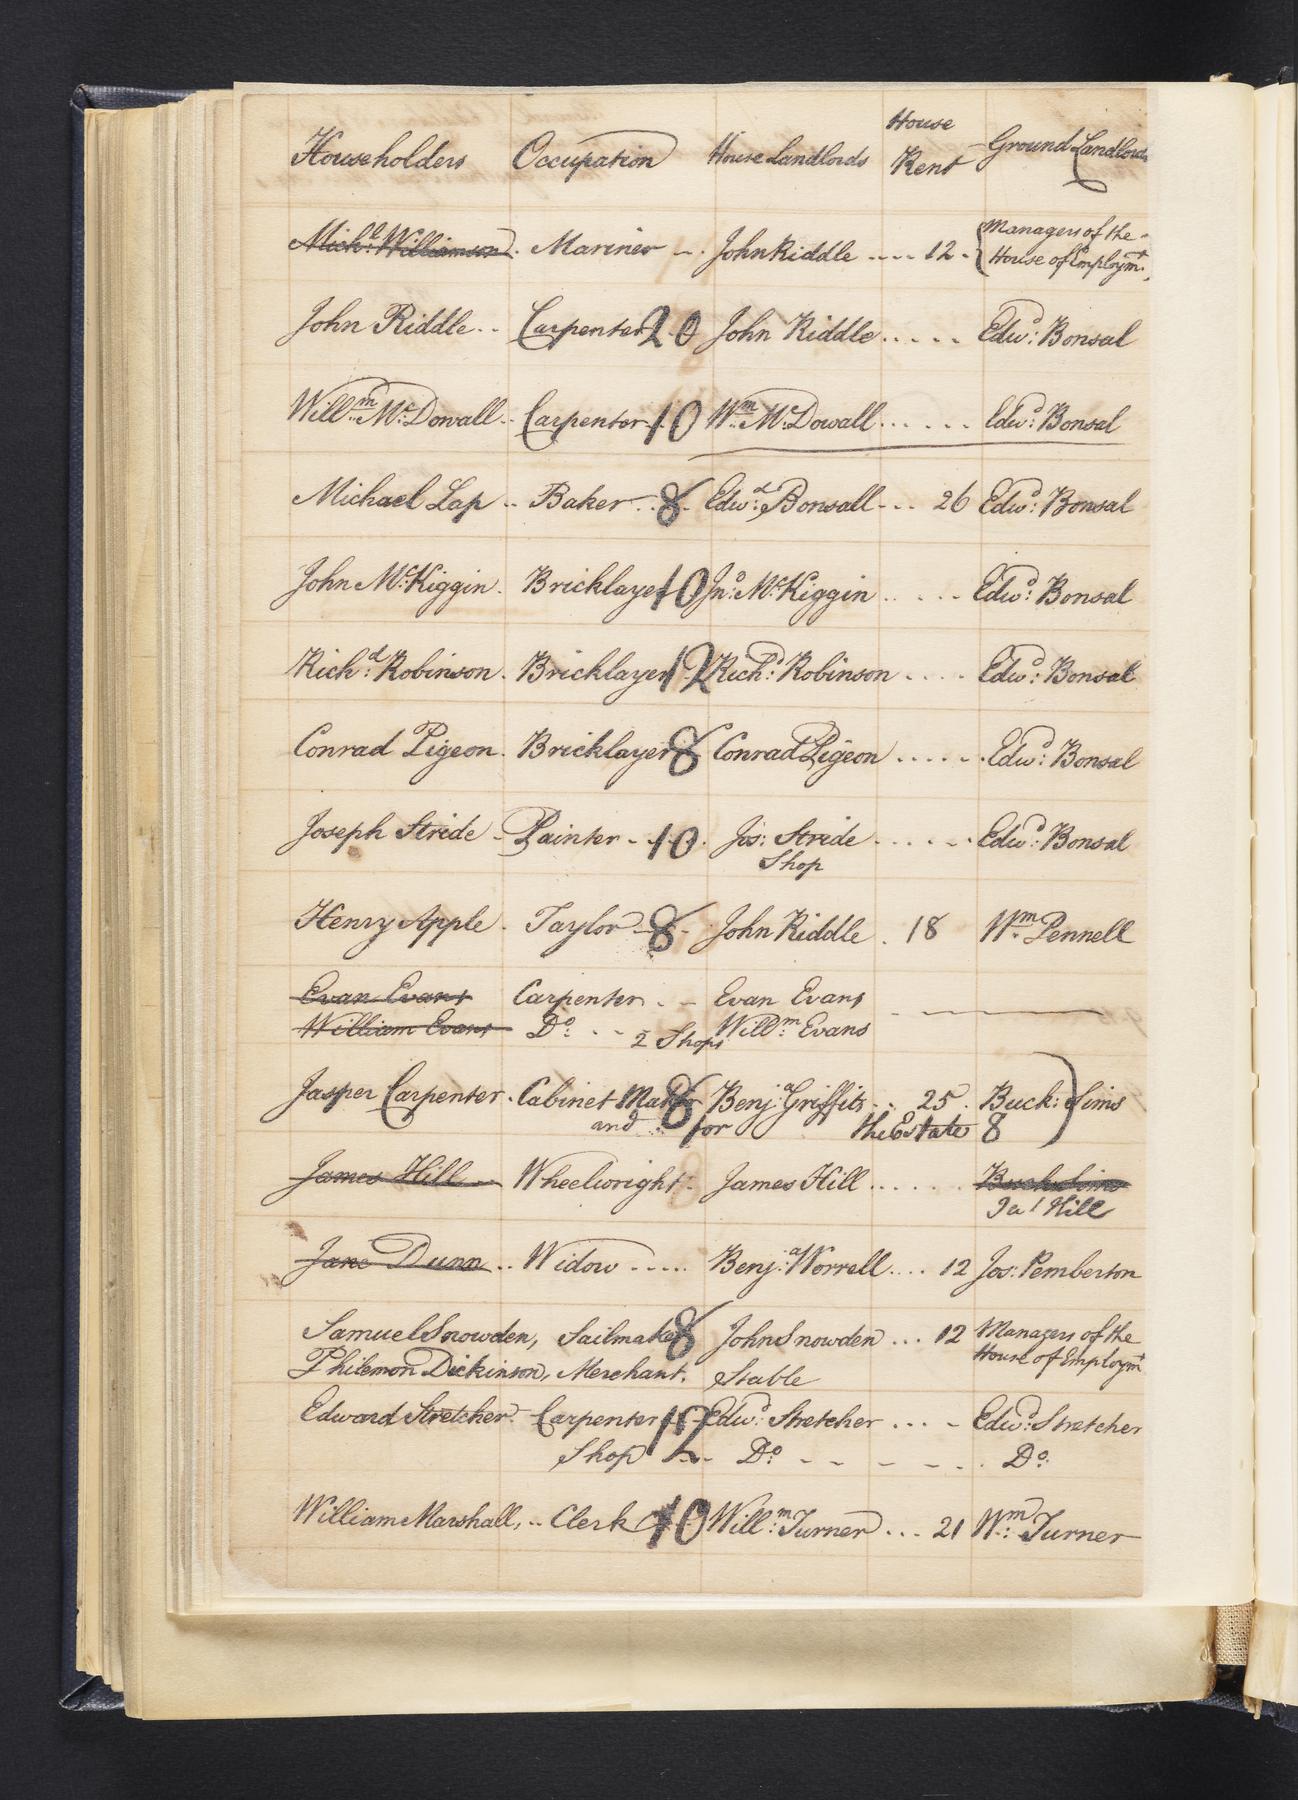 Householders Occupation House Landlords House Rent Ground Landlords
Mich:ll Williamson . Mariner - . John Riddle .... 12 . { Managers of the
House of Employmt.
John Riddle .. Carpenter 20 John Riddle ..... Edwd: Bonsal
Willm: Mc:Dowall .. Carpenter . 10 Wm: Mc:Dowall ...... Edwd: Bonsal
Michael Lap .. Baker .. 8 . Edwd: Bonsall ... 26 Edwd: Bonsal
John Mc:Kiggin . Bricklayer 10 Jno: Mc:Kiggin ..... Edwd: Bonsal
Richd: Robinson . Bricklayer 12 Richd: Robinson .... Edwd: Bonsal
Conrad Pigeon . Bricklayer 8 Conrad Pigeon ...... Edwd: Bonsal
Joseph Stride - Painter - . 10 . Jos: Stride ...... Edwd: Bonsal
Shop
Henry Apple . Taylor - 8 - John Riddle . 18 Wm: Pennell
Evan Evans Carpenter . - Evan Evans
William Evans Do: . - - 2 Shops Willm: Evans
Jasper Carpenter . Cabinet Maker 8 Benja: Griffits .. 25 . Buck: Sims
and .. for the Estate 8
James Hill Wheelwright . James Hill ...... Buck: Sims
Jas Hill
Jane Dunn .. Widow ..... Benja: Worrell .... 12 Jos: Pemberton
Samuel Snowden, Sailmaker 8 John Snowden ... 12 Managers of the
House of Employmt
Philemon Dickinson, Merchant. Stable
Edward Stretcher . Carpenter 12 Edwd: Stretcher ... - Edwd: Stretcher
Shop - .. Do: - - - - - . . Do:
William Marshall, .. Clerk 10 Willm: Turner ... 21 Wm: Turner